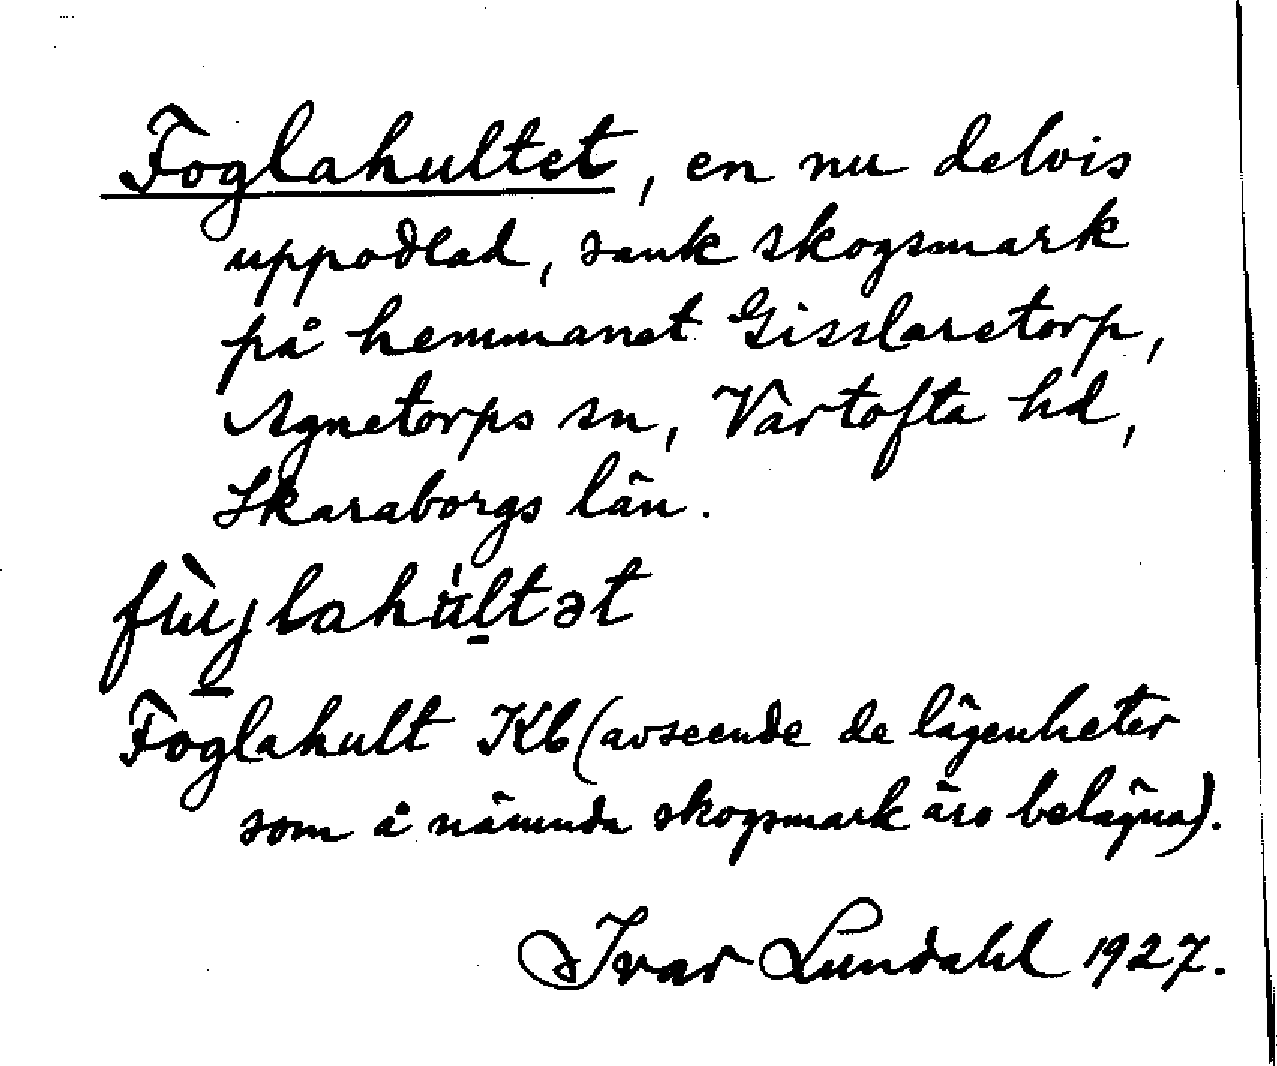 Foglahultet, en nu delvis
uppodlad, sank skogsmark
på hemmanet Gisslaretorp,
Agnetorps sn, Vartofta hd,
Skaraborgs län.
Foglahult Kb (avseende de lägenheter
som å nämnda skogsmark äro belägna).
Ivar Lundahl 1927.